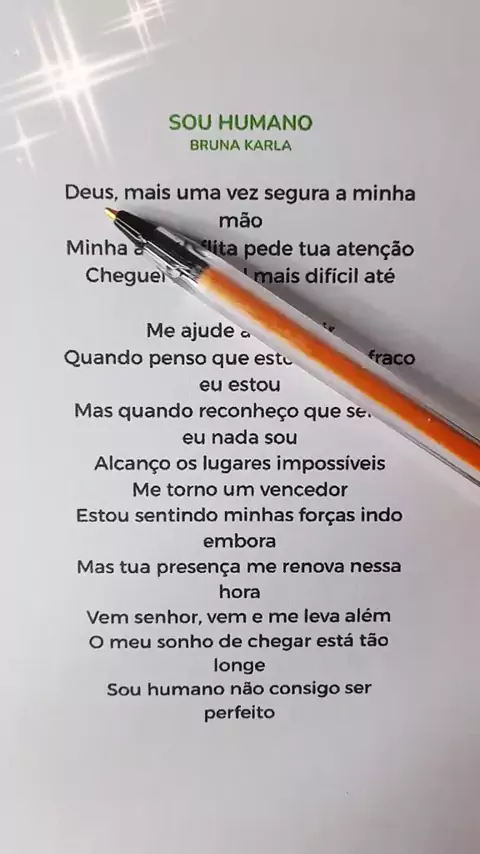 SOU HUMANO
BRUNA KARLA
Deus, mais uma vez segura a minha
mão
Minha pede tua atenção
Cheguei mais difícil até
Me ajude
Quando penso que fraco
eu estou
Mas quando reconheço que
eu nada sou
Alcanço os lugares impossíveis
Me torno um vencedor
Estou sentindo minhas forças indo
embora
Mas tua presença me renova nessa
hora
Vem senhor, vem e me leva além
O meu sonho de chegar está tão
longe
Sou humano não consigo ser
perfeito